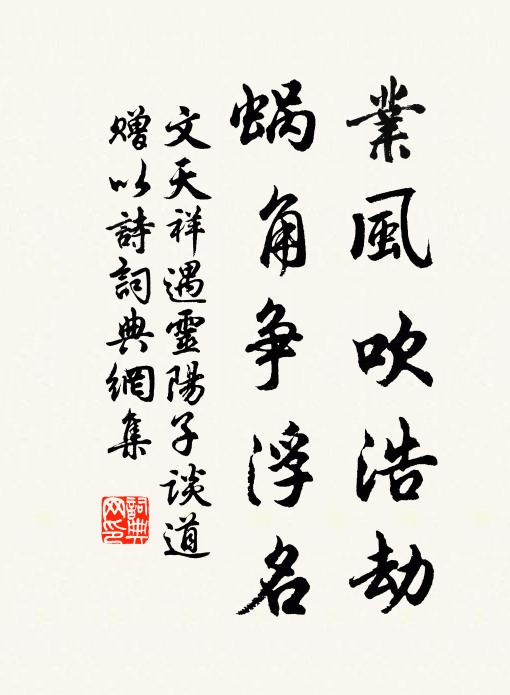 業風吹浩劫
蝸角争浮名
文天祥遇靈陽子談道
贈以詩詞典網集
詞典
网印